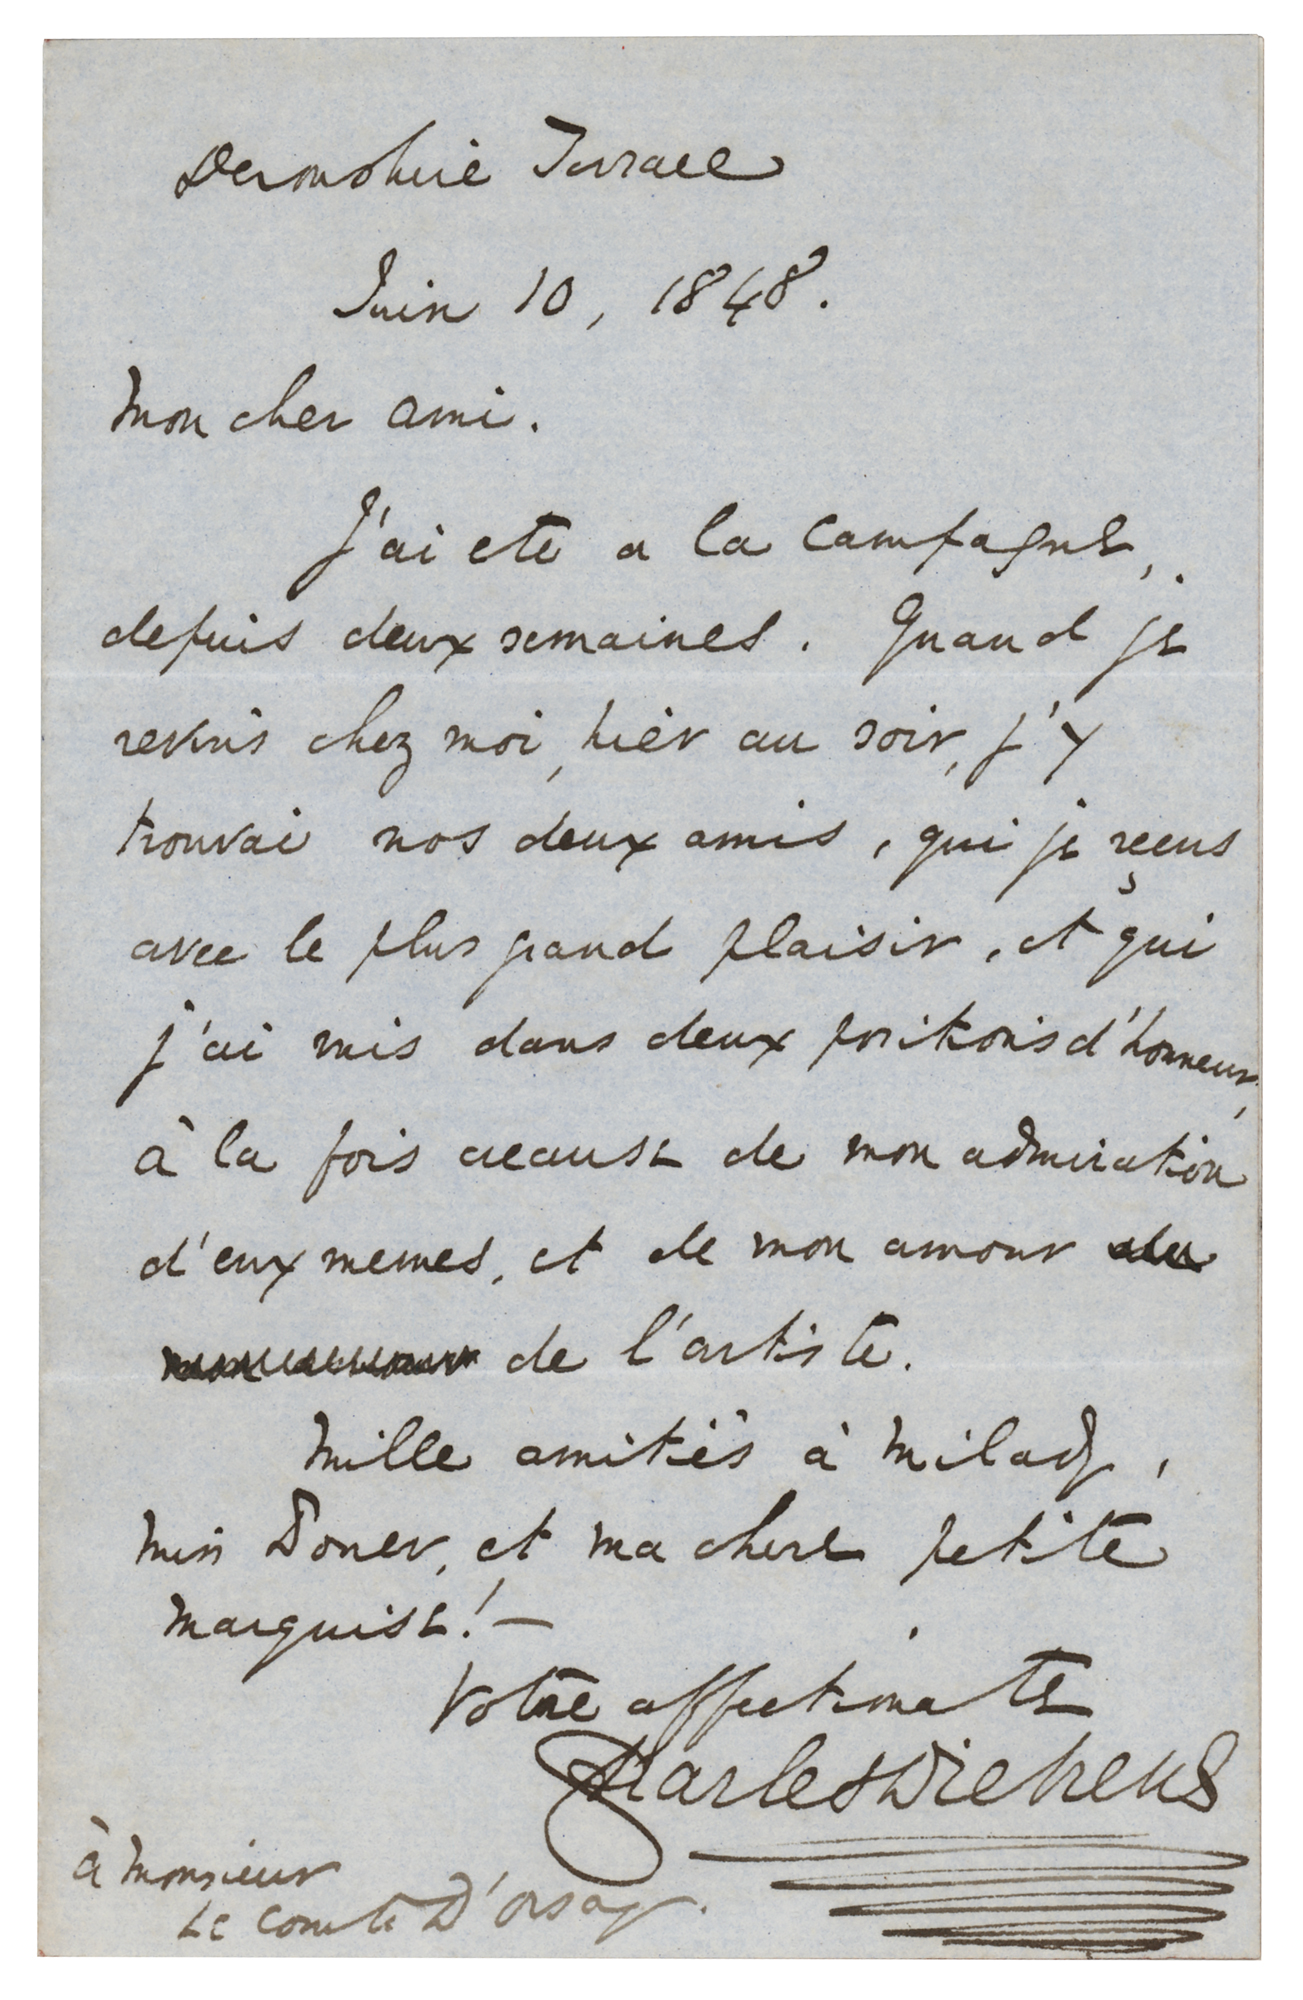 Devonshire Terrace
Juin 10, 1848.
Mon cher ami.
J'ai eté a la campagne,
depuis deux semaines. Quand je
revins chez moi, hièr au soir, j'y
trouvai nos deux amis, qui je reçus
avec le plus grand plaisir, et qui
j'ai mis dans deux positions d'honneur,
à la fois acause de mon admiration
d'eux memes, et de mon amour
de l'artiste.
Mille amitiés à Milady,
Miss Power, et ma chere petite
Marquise! —
Votre affectionate
Charles Dickens
à Monsieur
Le Comte D'Orsay.